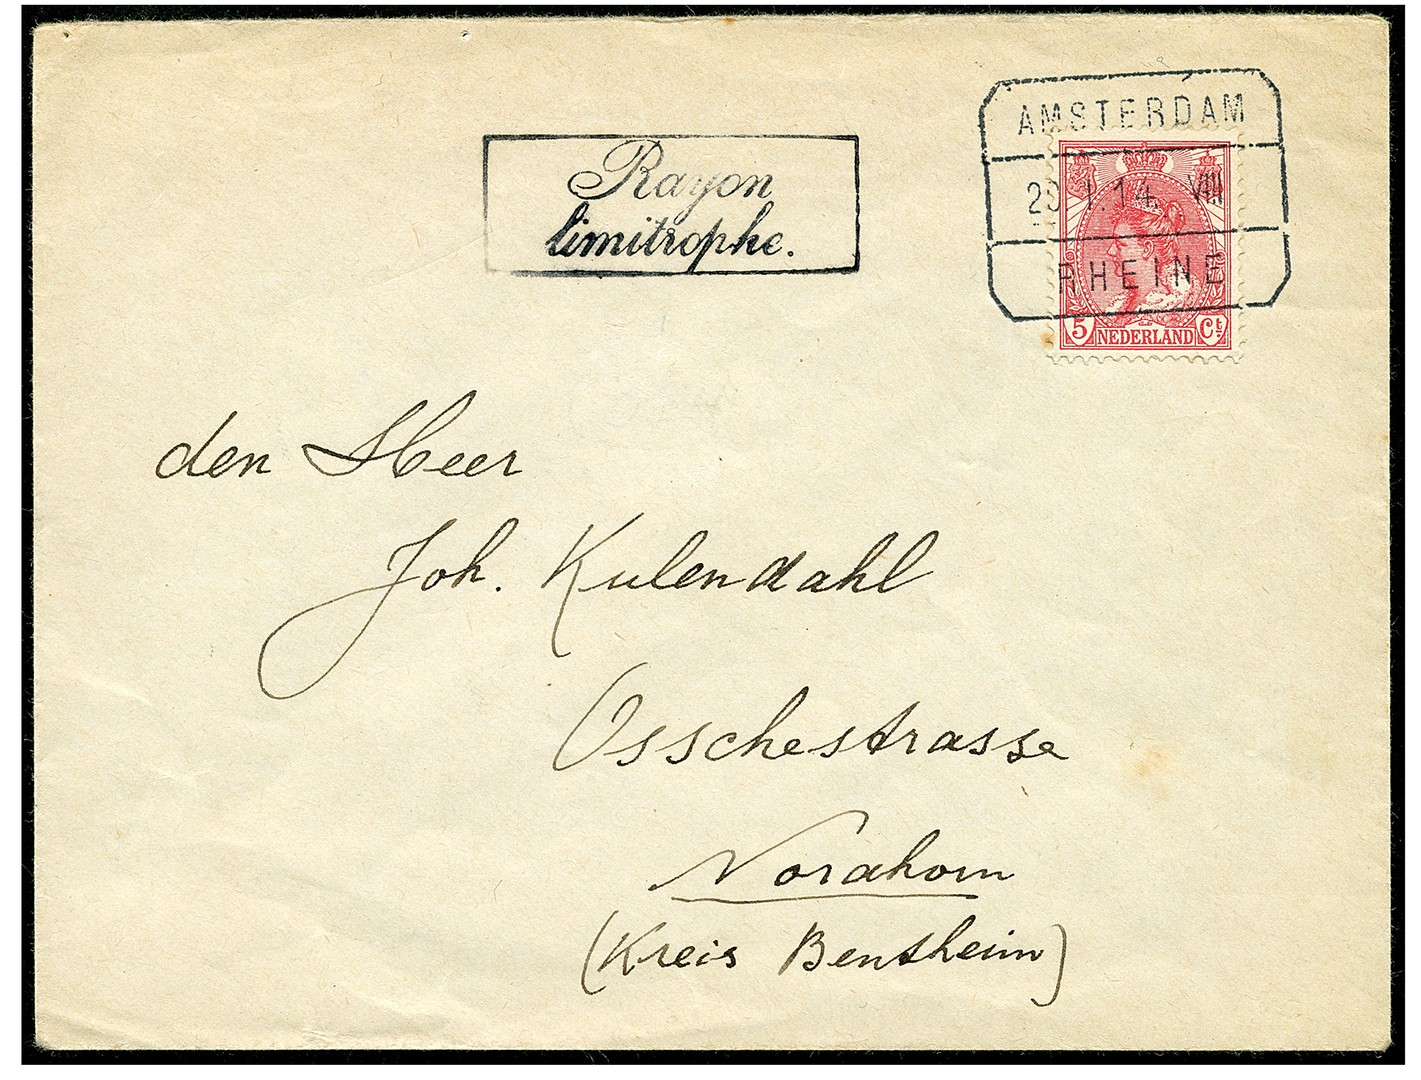 Rayon
limitrophe.
AMSTERDAM
29.1.14. VIII
RHEINE
5 NEDERLAND Ct
den Heer
Joh. Kulendahl
Osschestrasse
Nordhorn
(Kreis Bentheim)